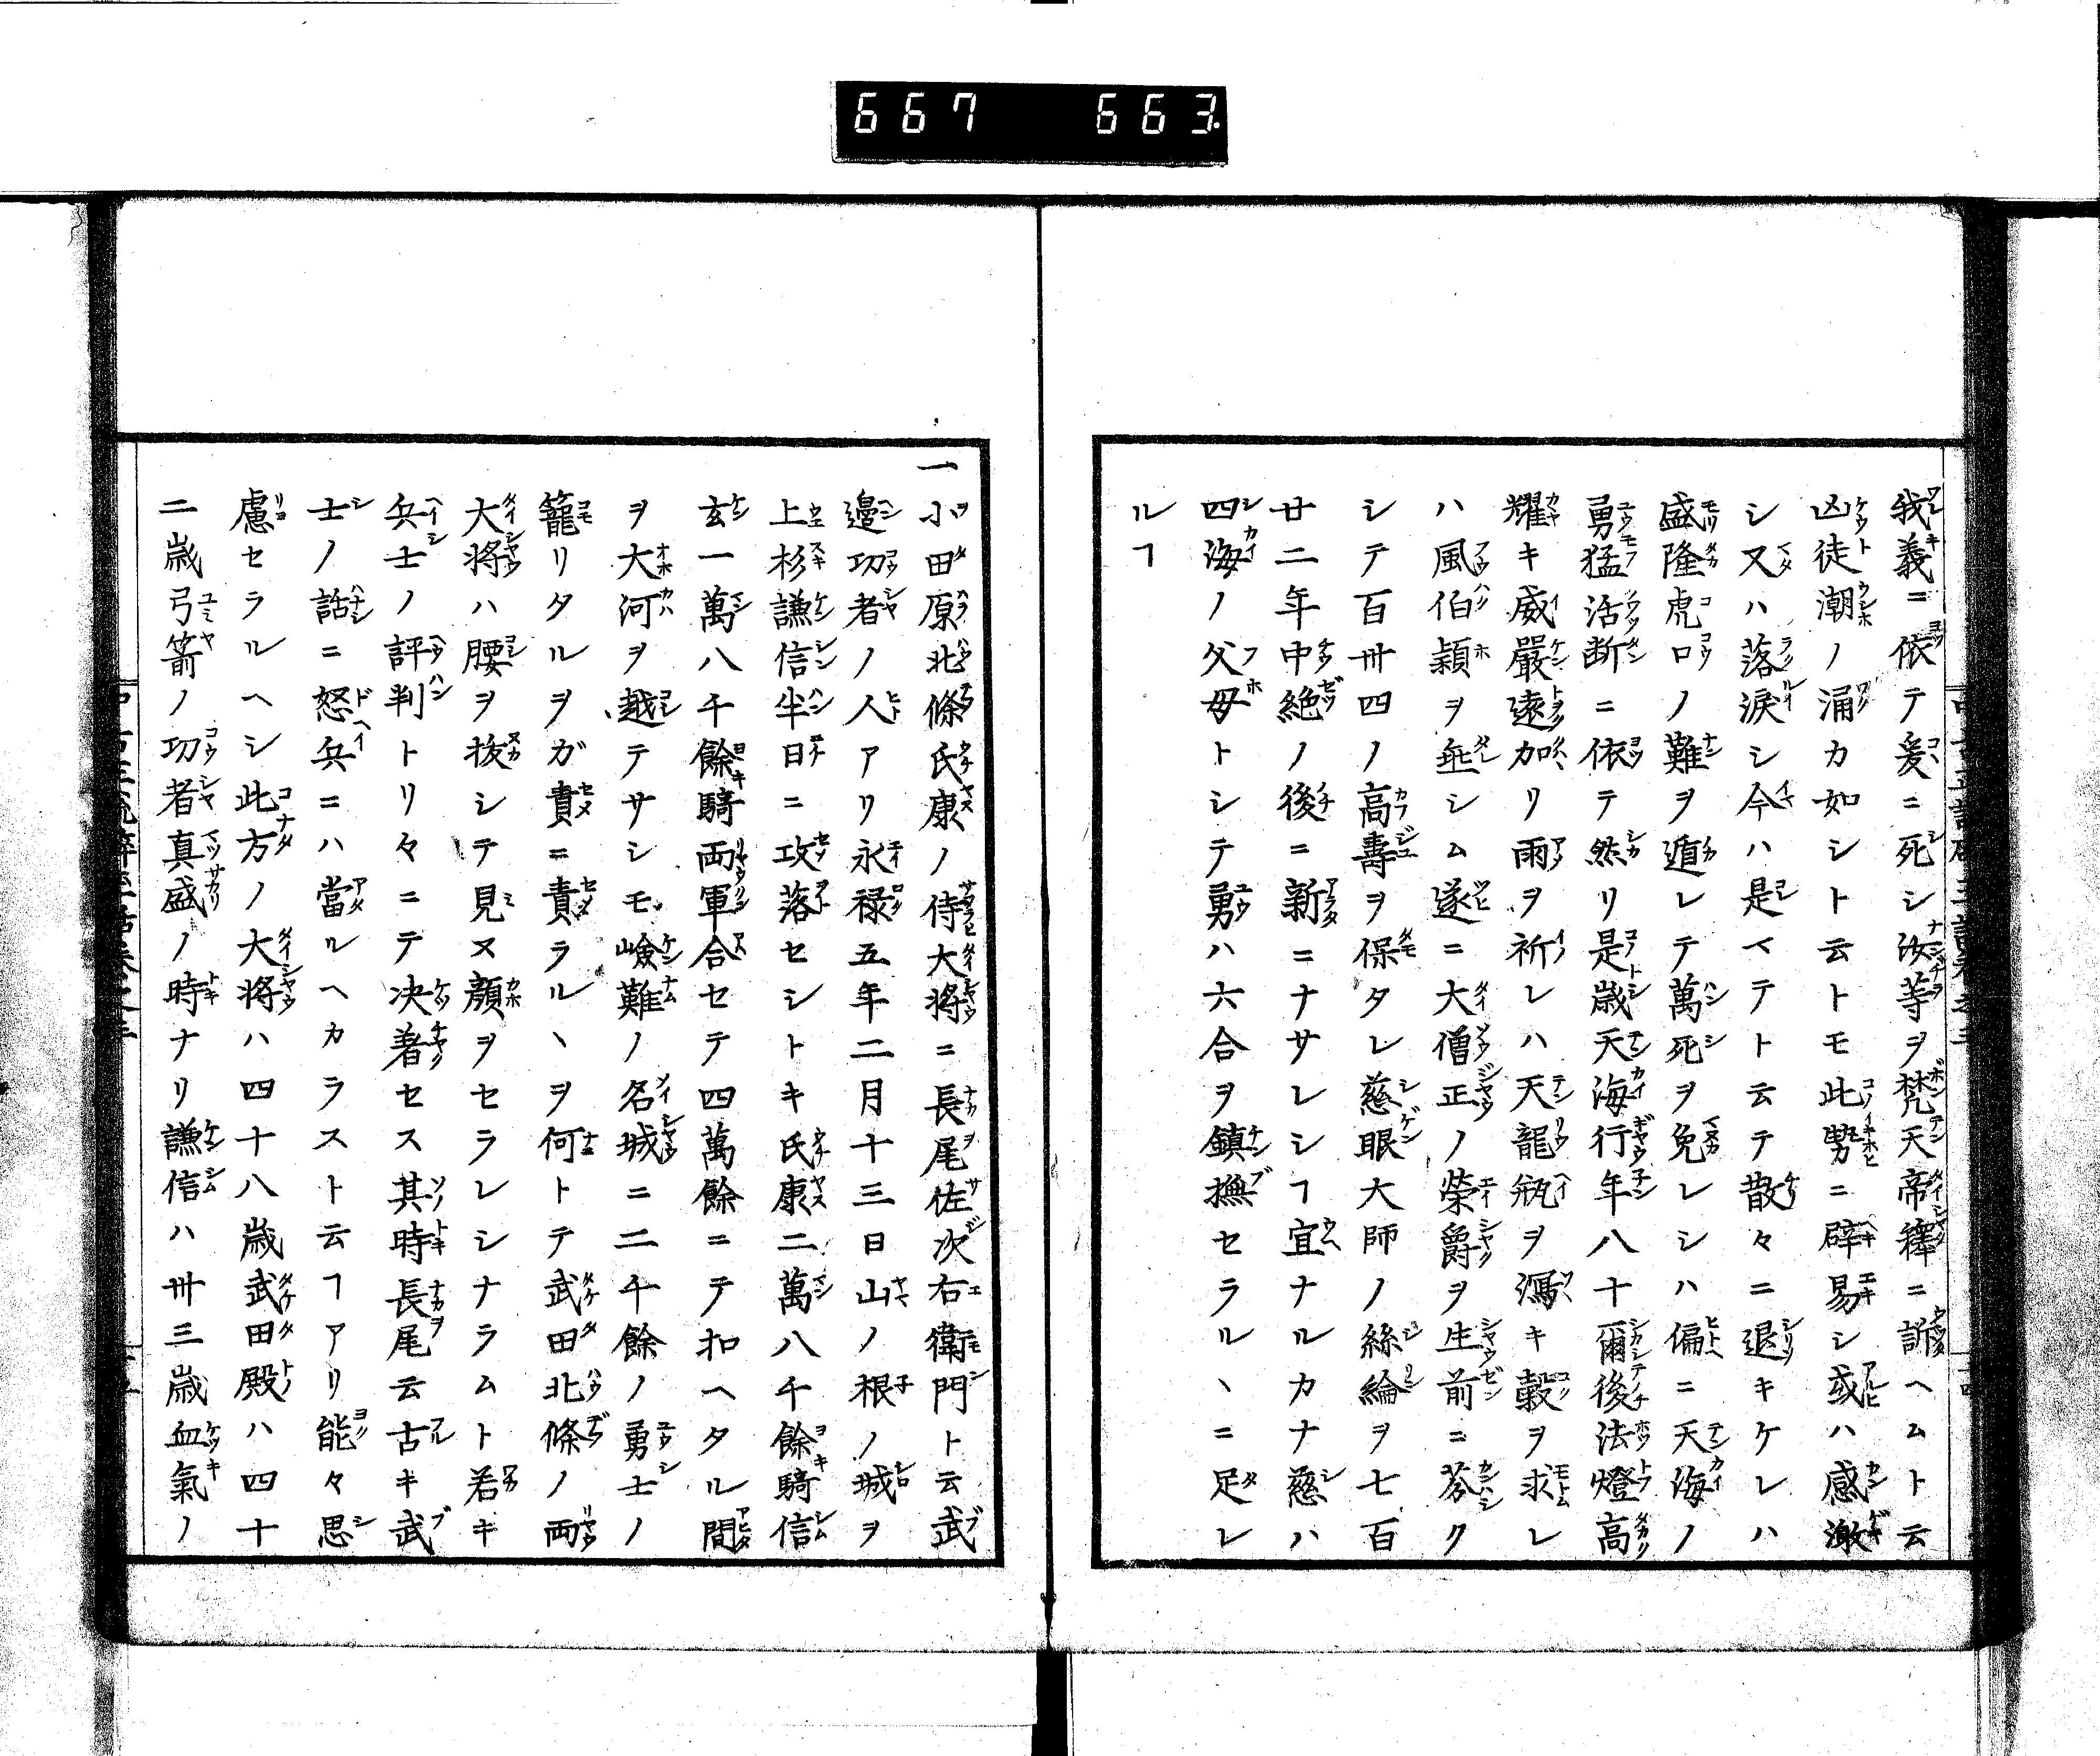 667 663
我義ニ依テ爰ニ死シ汝等ヲ梵天帝釋ニ訴ヘムト云
凶徒潮ノ涌カ如シト云トモ此勢ニ辟易シ或ハ感激
シ又ハ落淚シ今ハ是マテト云テ散々ニ退キケレハ
盛隆虎口ノ難ヲ遁レテ萬死ヲ免レシハ偏ニ天海ノ
勇猛活断ニ依テ然リ是歳天海行年八十爾後法燈高
耀キ威嚴遠加リ雨ヲ祈レハ天龍瓶ヲ瀉キ穀ヲ求レ
ハ風伯穎ヲ垂シム遂ニ大僧正ノ榮爵ヲ生前ニ芬ク
シテ百卅四ノ高壽ヲ保タレ慈眼大師ノ絲綸ヲ七百
廿二年中絶ノ後ニ新ニナサレシヿ宜ナルカナ慈ハ
四海ノ父母トシテ勇ハ六合ヲ鎮撫セラルヽニ足レ
ルヿ
一小田原北條氏康ノ侍大将ニ長尾佐次右衛門ト云武
邉功者ノ人アリ永禄五年二月十三日山ノ根ノ城ヲ
上杉謙信半日ニ攻落セシトキ氏康二萬八千餘騎信
玄一萬八千餘騎両軍合セテ四萬餘ニテ扣ヘタル間
ヲ大河ヲ越テサシモ嶮難ノ名城ニ二千餘ノ勇士ノ
籠リタルヲガ責ニ責ラルヽヲ何トテ武田北條ノ両
大将ハ腰ヲ抜シテ見ヌ顔ヲセラレシナラムト若キ
兵士ノ評判トリ々ニテ决着セス其時長尾云古キ武
士ノ話ニ怒兵ニハ當ルヘカラスト云ヿアリ能々思
慮セラルヘシ此方ノ大将ハ四十八歳武田殿ハ四十
二歳弓箭ノ功者真盛ノ時ナリ謙信ハ卅三歳血氣ノ